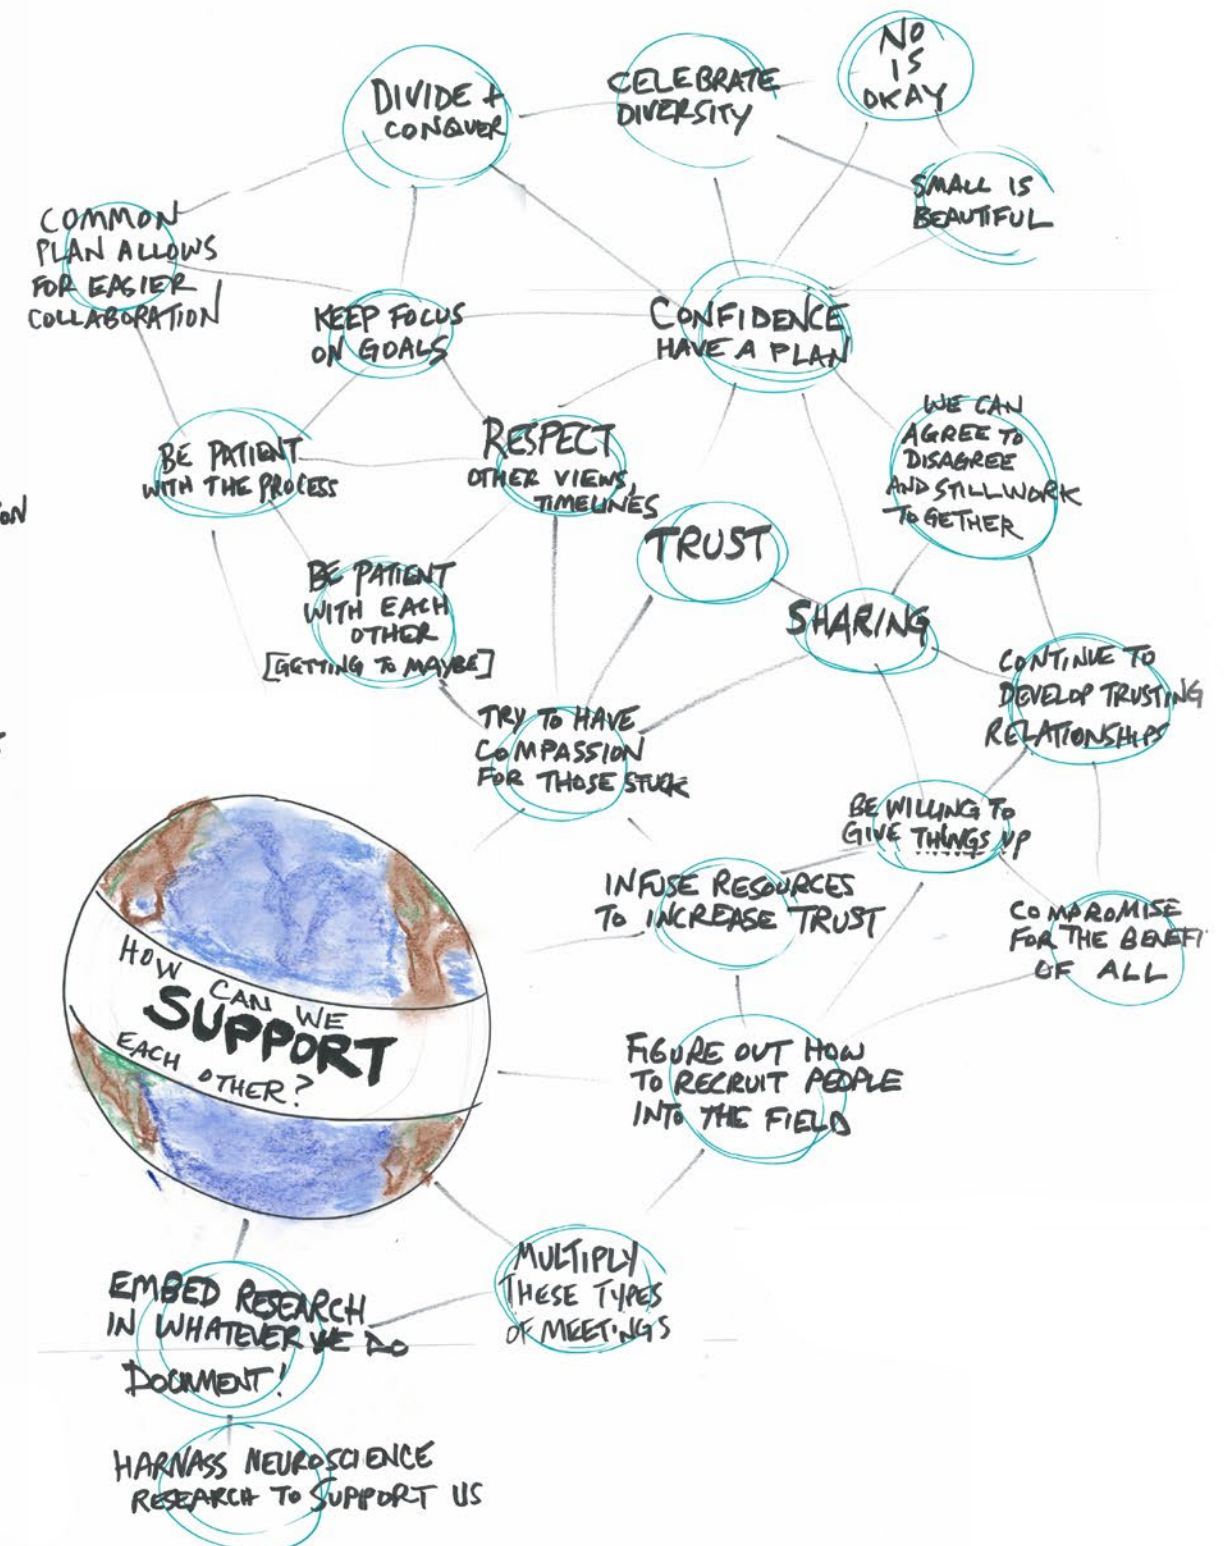 NO
IS
OKAY
DIVIDE +
CONQUER
CELEBRATE
DIVERSITY
SMALL IS
BEAUTIFUL
COMMON
PLAN ALLOWS
FOR EASIER
COLLABORATION
KEEP FOCUS
ON GOALS
CONFIDENCE
HAVE A PLAN
WE CAN
AGREE TO
DISAGREE
AND STILL WORK
TOGETHER
BE PATIENT
WITH THE PROCESS
RESPECT
OTHER VIEWS,
TIMELINES
TRUST
BE PATIENT
WITH EACH
OTHER
[GETTING TO MAYBE]
SHARING
CONTINUE TO
DEVELOP TRUSTING
RELATIONSHIPS
TRY TO HAVE
COMPASSION
FOR THOSE STUCK
BE WILLING TO
GIVE THINGS UP
INFUSE RESOURCES
TO INCREASE TRUST
COMPROMISE
FOR THE BENEFI
OF ALL
HOW
CAN WE
SUPPORT
EACH OTHER?
FIGURE OUT HOW
TO RECRUIT PEOPLE
INTO THE FIELD
MULTIPLY
THESE TYPES
OF MEETINGS
EMBED RESEARCH
IN WHATEVER WE DO
DOCUMENT!
HARNASS NEUROSCIENCE
RESEARCH TO SUPPORT US